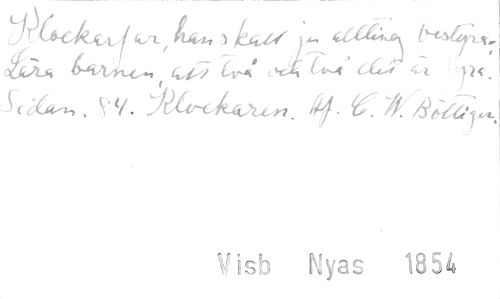 Klockarfar, han skall ju allting bestyra;
Lära barnen, att två och två det är fyra.
Sidan. 84. Klockaren. Af. C. W. Böttiger.
Visb Nyas 1854